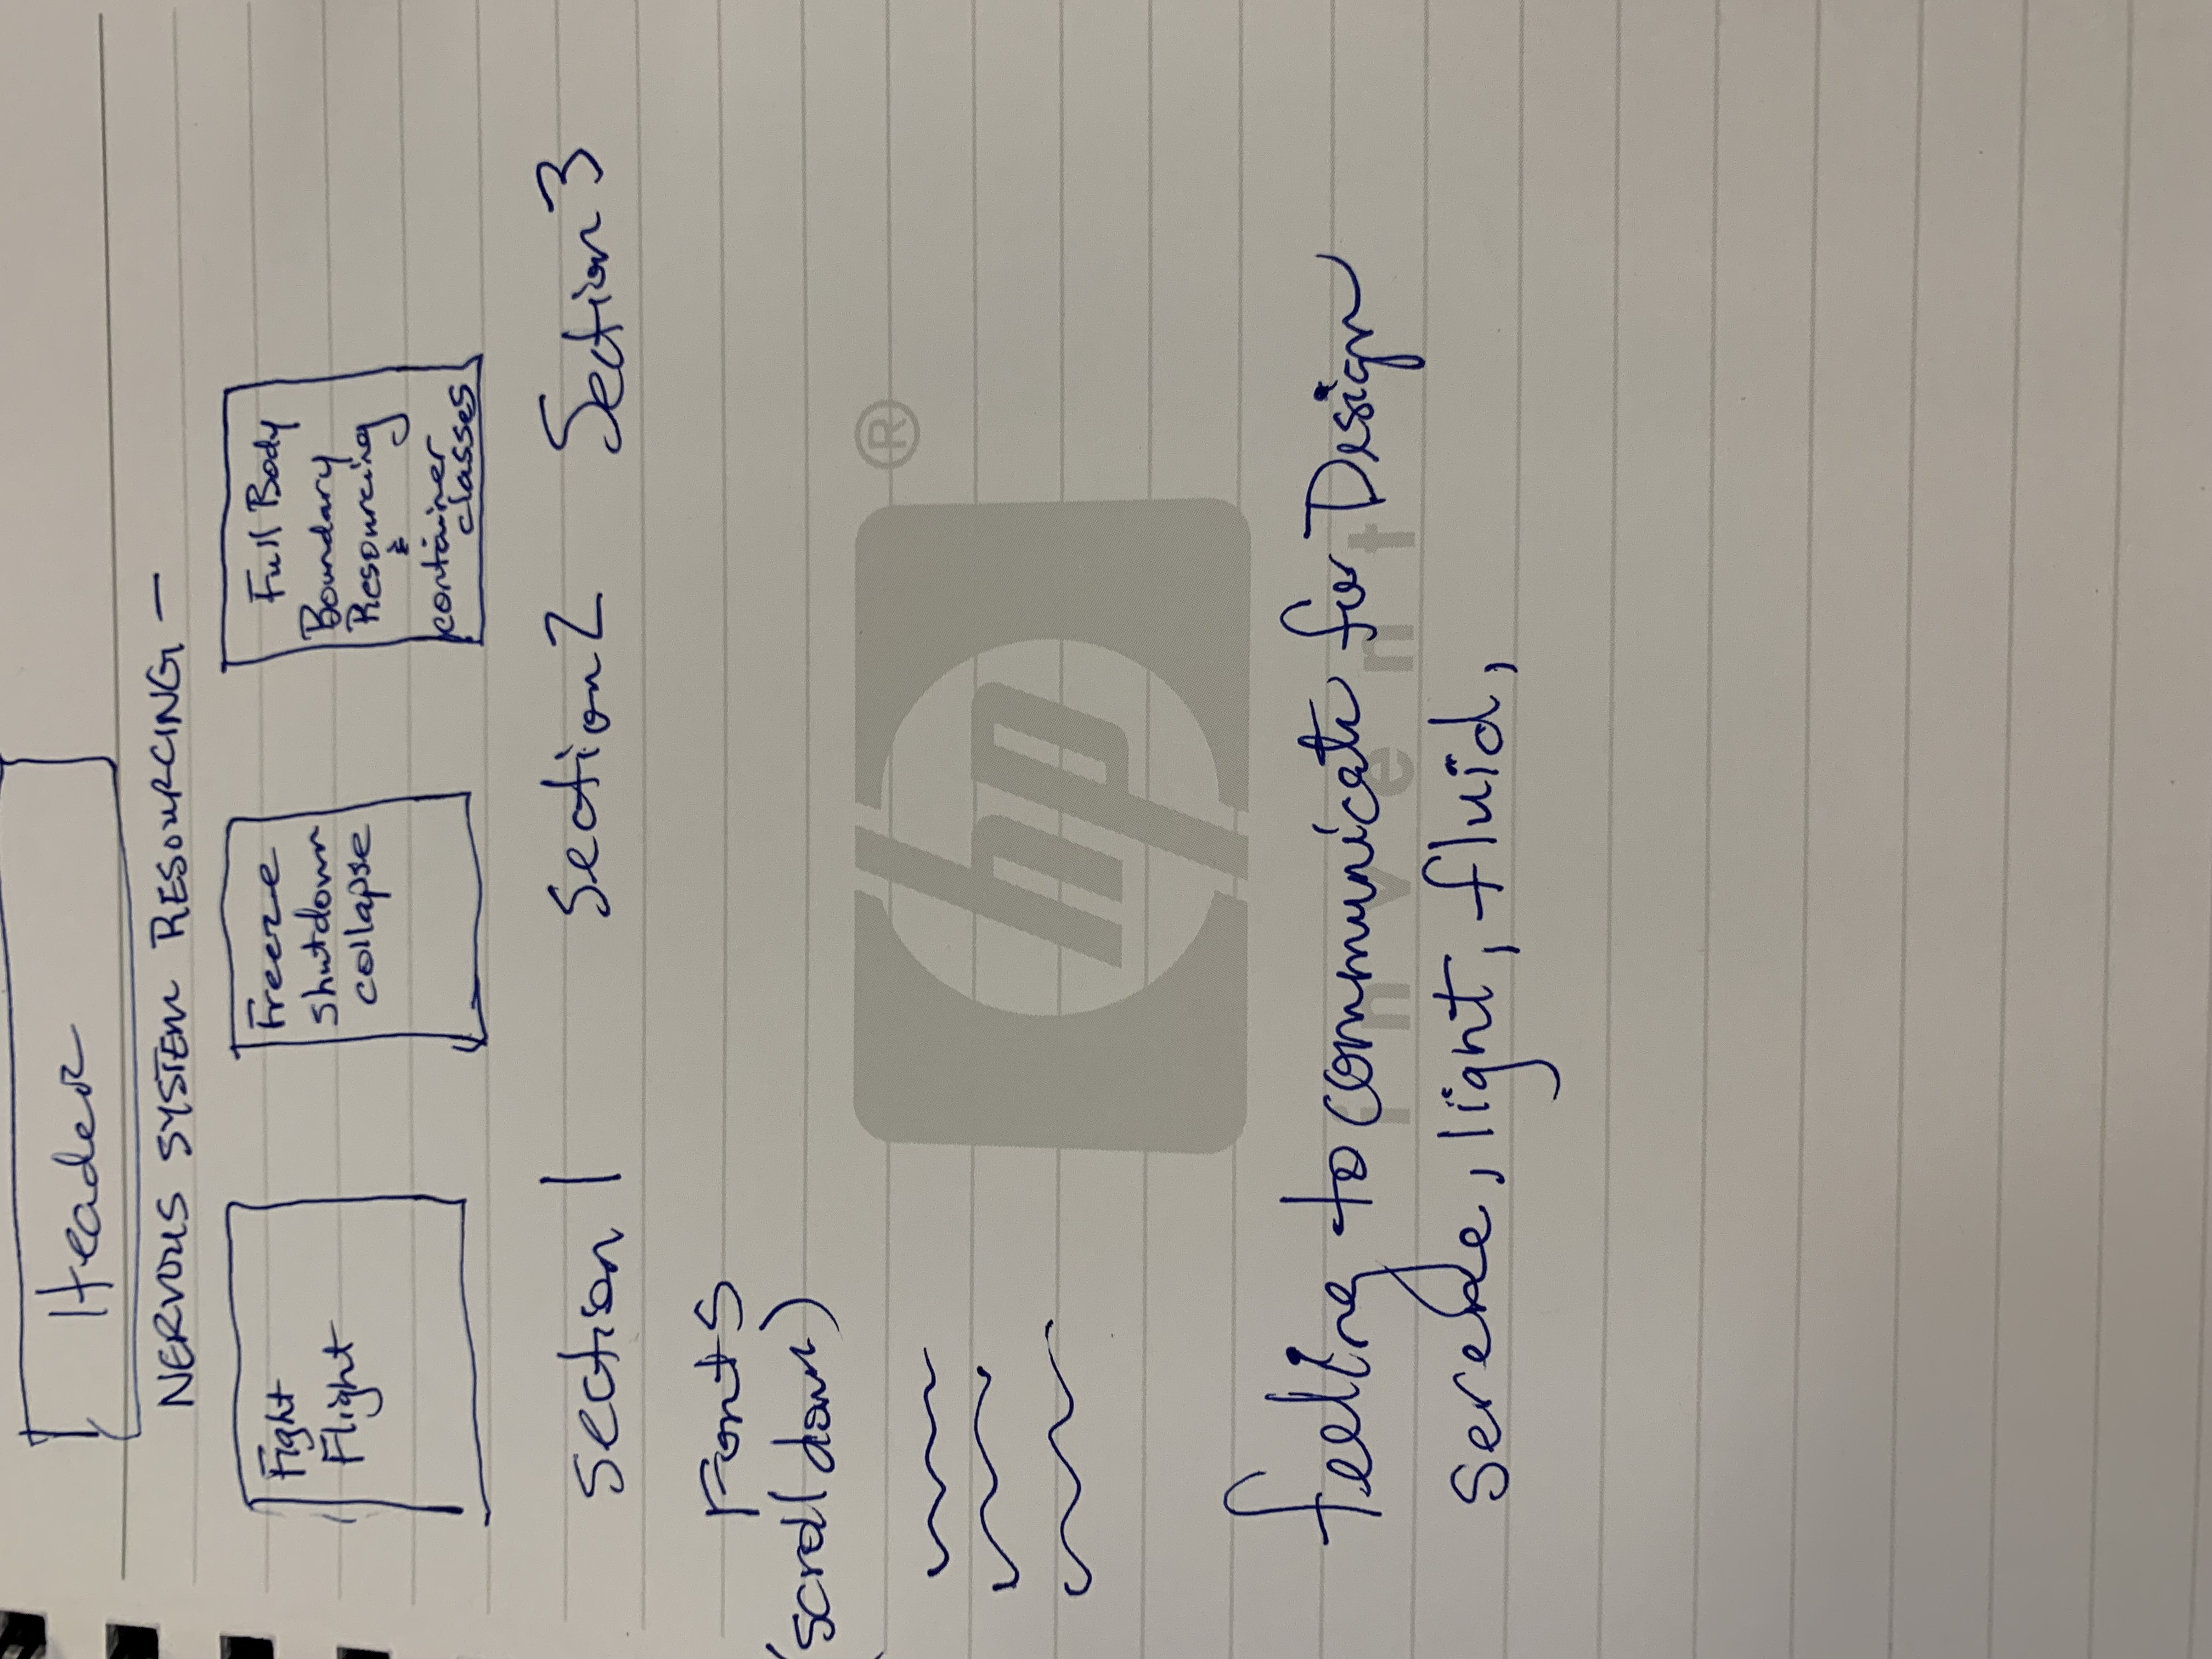 Header
NERVOUS SYSTEM RESOURCING —
Fight
Flight
Freeze
shutdown
collapse
Full Body
Boundary
Resourcing
&
container
classes
Section 1
Section 2
Section 3
Fonts
(scroll down)
hp®
invent
feeling to communicate for Design
serene, light, fluid,